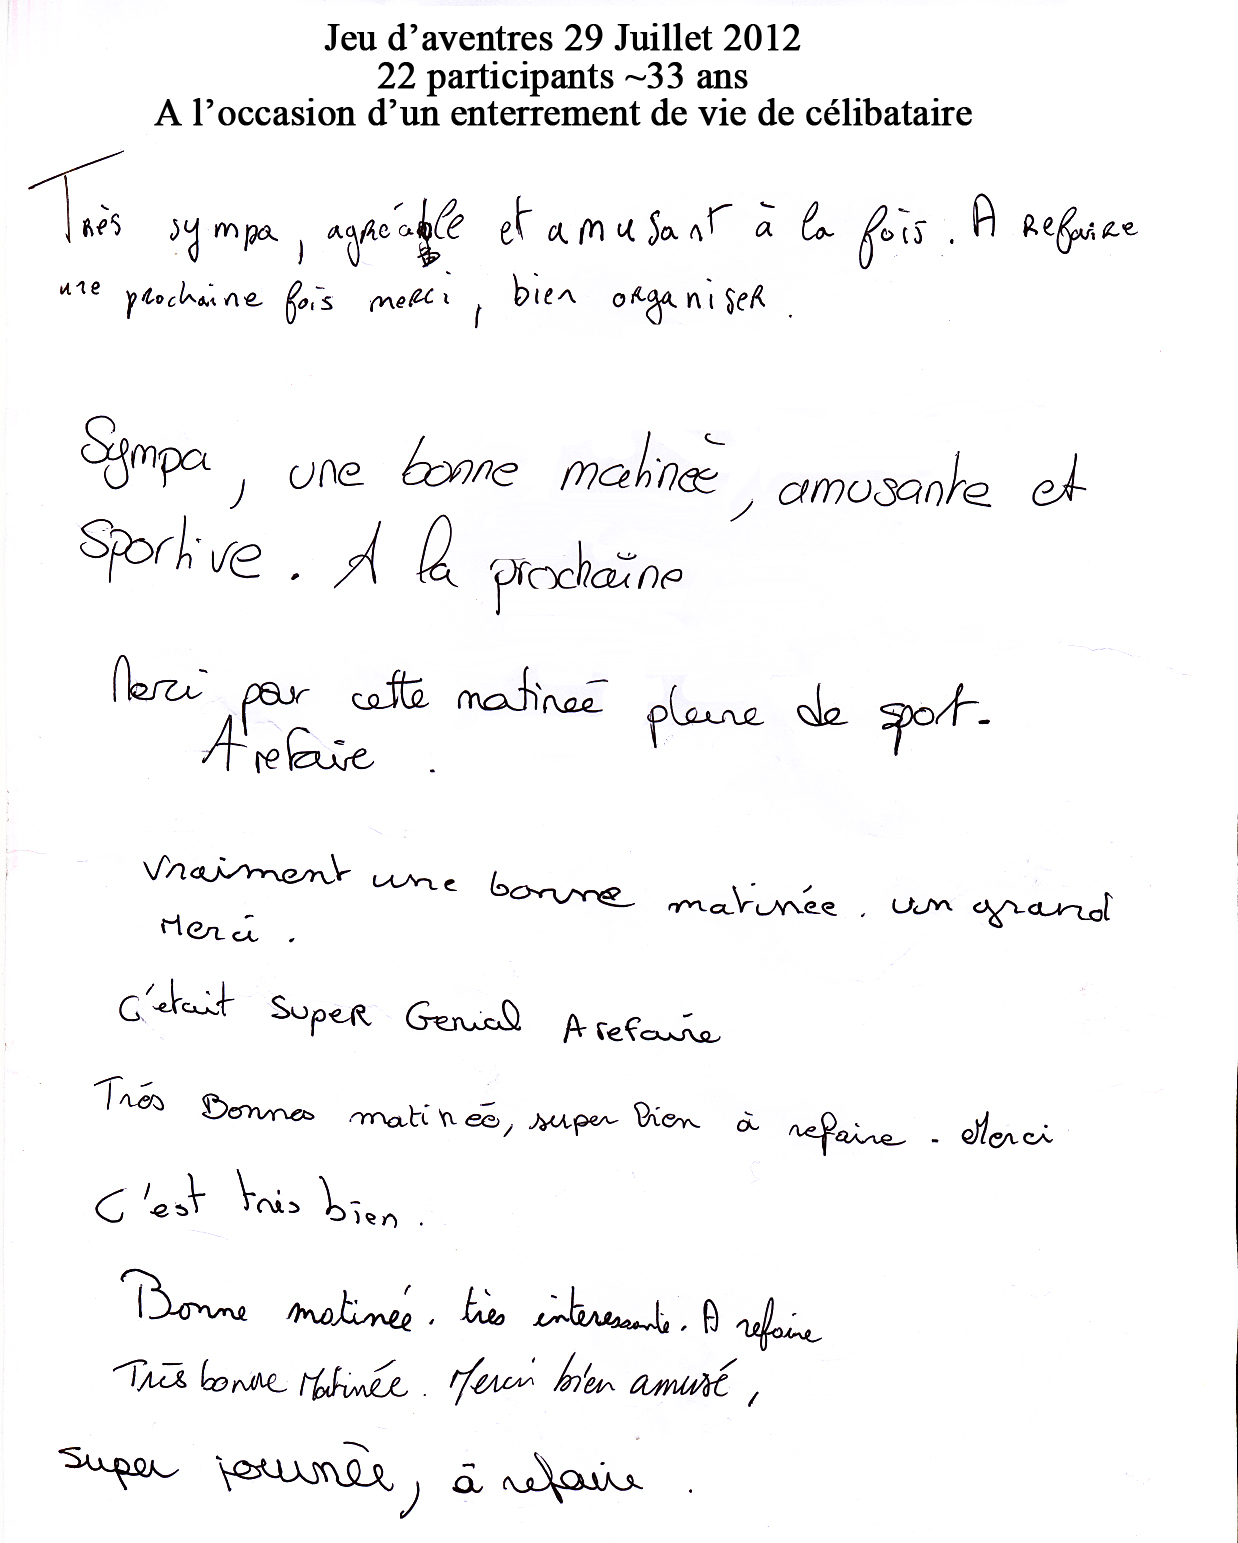 Jeu d’aventres 29 Juillet 2012
22 participants ~33 ans
A l’occasion d’un enterrement de vie de célibataire
Très sympa, agréable et amusant à la fois. A refaire
une prochaine fois merci, bien organiser.
Sympa, une bonne matineé, amusante et
Sportive. A la prochaine
Merci par cette matineé pleine de sport.
A refaire.
Vraiment une bonne matinée. un grand
Merci.
C'etait super Genial A refaire
Trés Bonnes matineé, super bien à refaire. Merci
C'est tris bien.
Bonne matinée. très interessante. A refaire
Très bonne Matinée. Merci bien amusé,
super journée, à refaire.